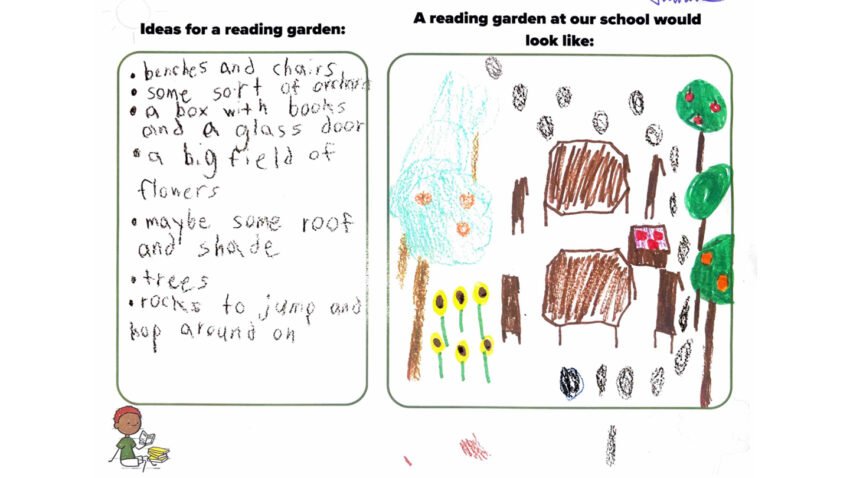 Ideas for a reading garden:
• benches and chairs
• some sort of orchard
• a box with books
and a glass door
• a big field of
flowers
• maybe some roof
and shade
• trees
• rocks to jump and
hop around on
A reading garden at our school would
look like: